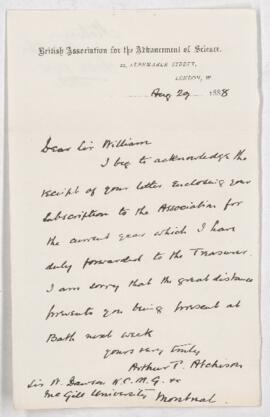 British Association for the Advancement of Science.
22, ALBEMARLE STREET,
LONDON, W.
Aug 29 1888
Dear Sir William
I beg to acknowledge the
receipt of your letter enclosing your
subscription to the Association for
the current year which I have
duly forwarded to the Treasurer.
I am sorry that the great distance
prevents you being present at
Bath next week
yours very truly
Arthur T. Atchison
Sir W. Dawson K.C.M.G. &c
McGill University Montreal